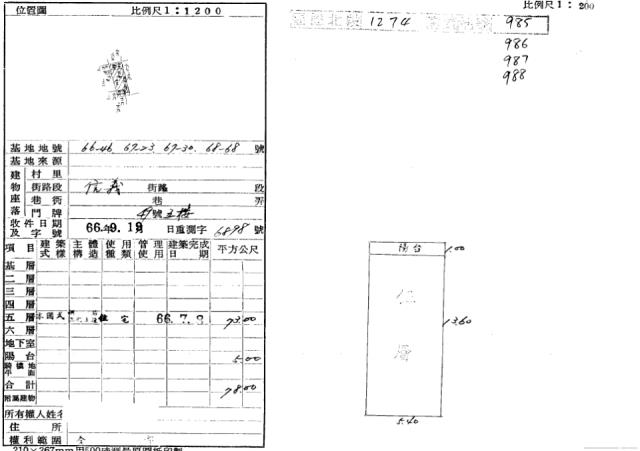 位置圖 比例尺1:1200
基地地號 66-46. 67-23. 67-30. 68-68 號
基地來源
建物座落 村里
街路段 信義 街路 段
巷衖 巷 弄
門牌 49號五樓
收件日期及字號 66年9.19日重測字6898號
項目 建築式樣 主體構造 使用種類 管理使用 建築完成日期 平方公尺
基層
二層
三層
四層
五層 本國式 住宅 66.7.9 73.00
六層
地下室
陽台 5.00
騎樓地平面
合計 78.00
附屬建物
所有權人姓名
住所
權利範圍 全
比例尺1: 200
北段 1274 985
986
987
988
陽台
1.00
13.60
層
5.40